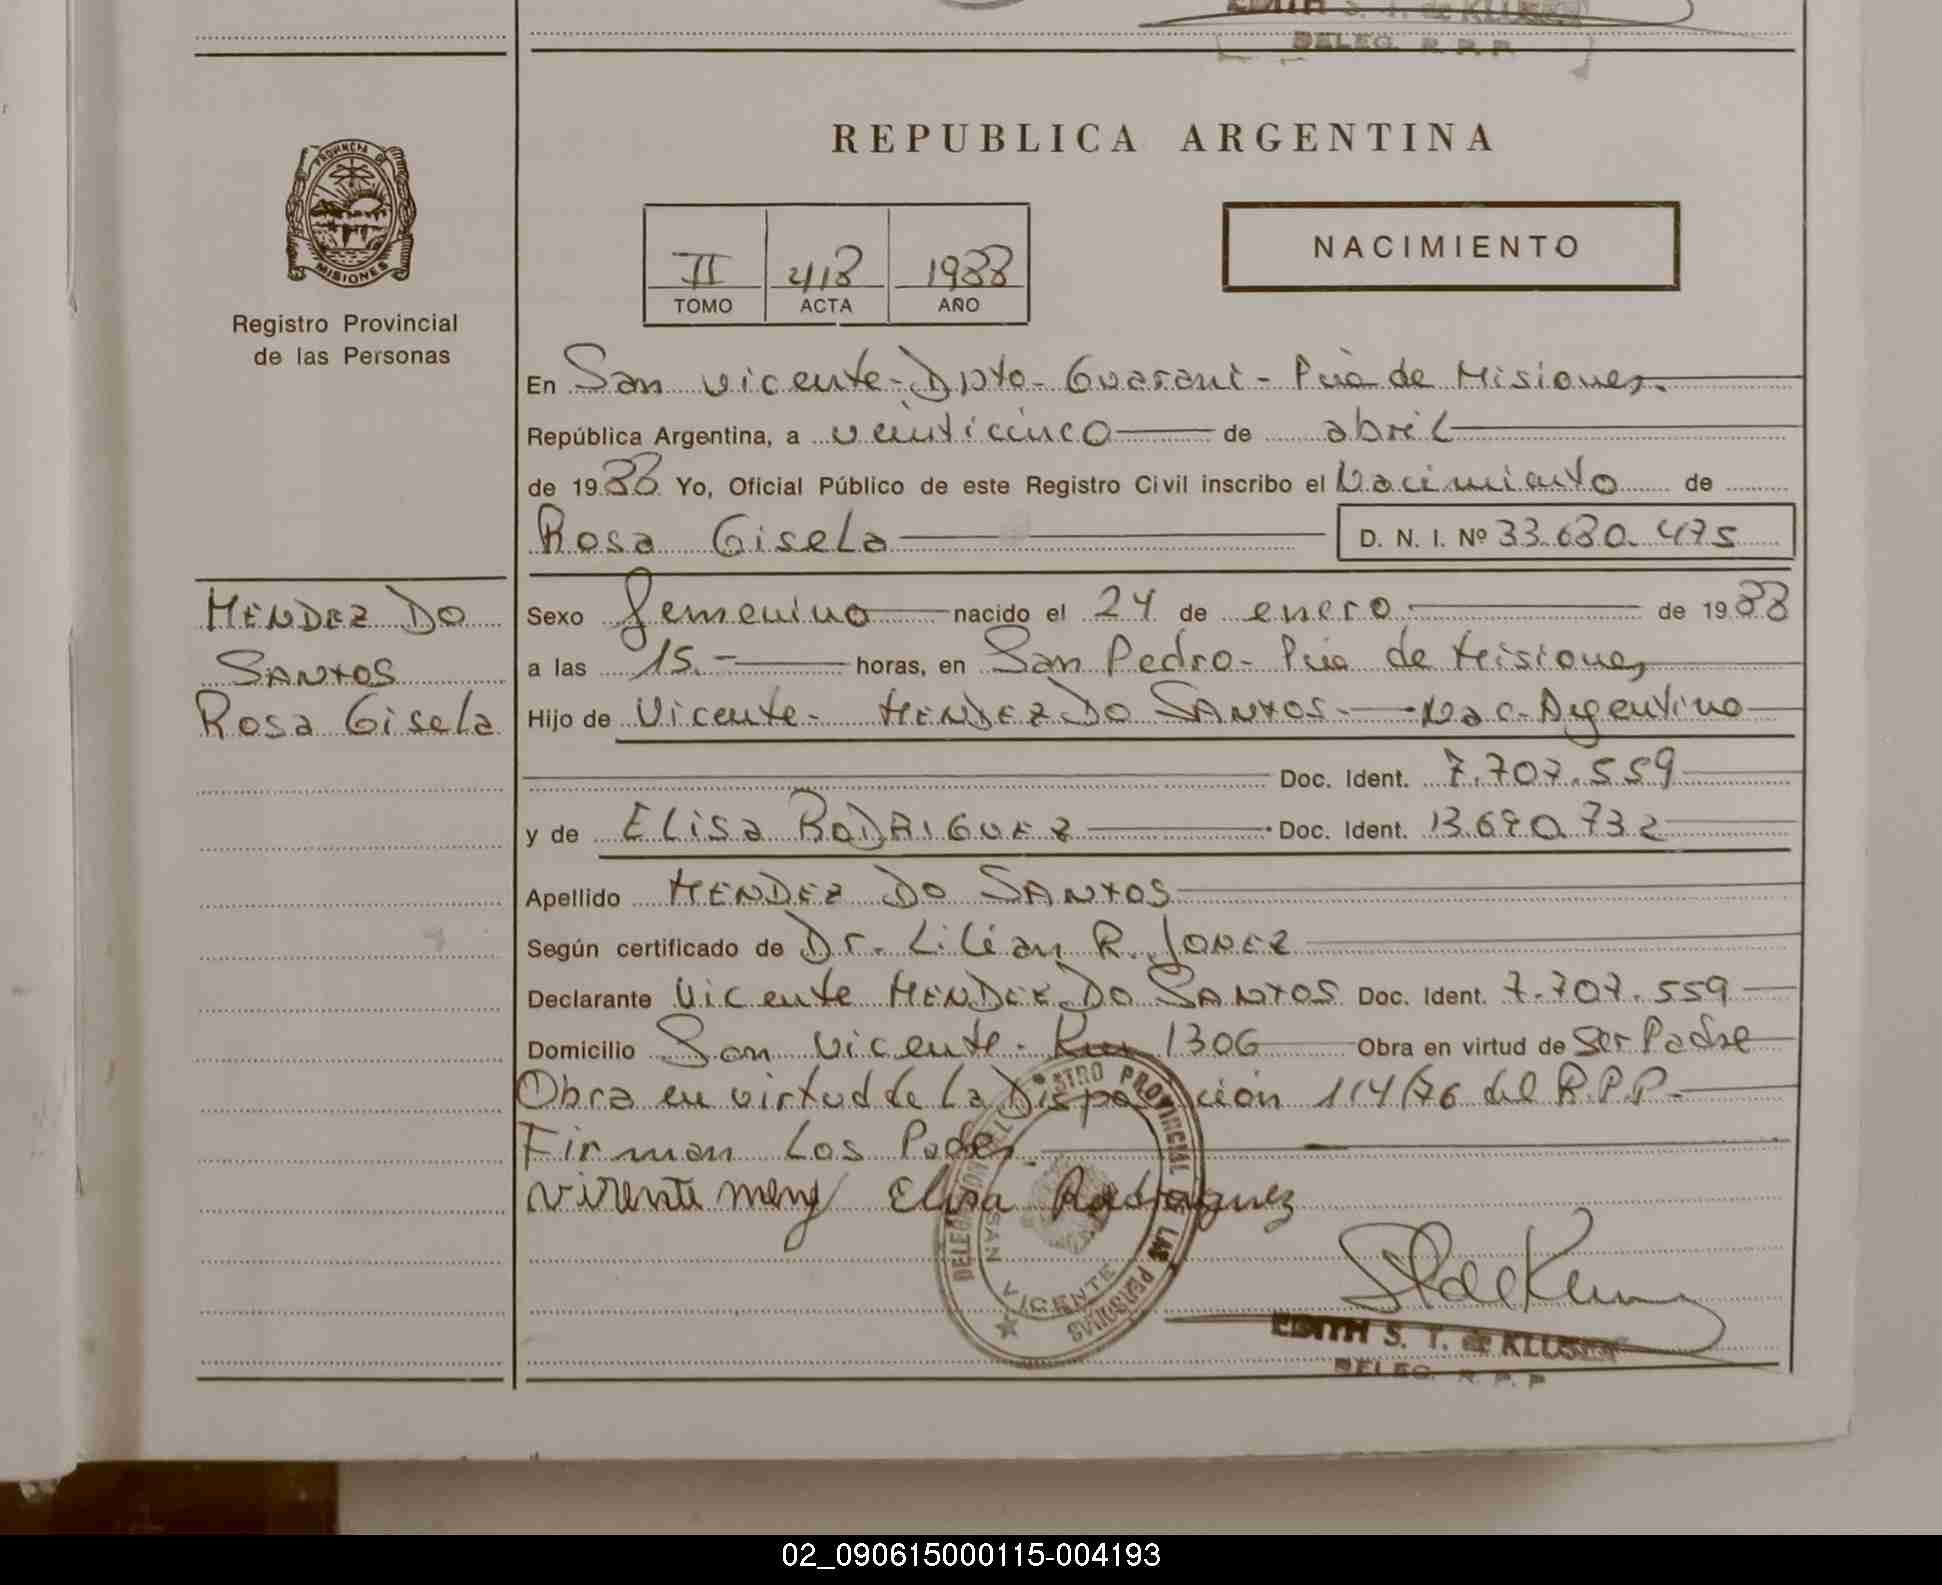 EDITH S. T. de KLUSEN
DELEG. R. P. P.
REPUBLICA ARGENTINA
PROVINCIA DE
MISIONES
Registro Provincial
de las Personas
II 418 1988
TOMO ACTA AÑO
NACIMIENTO
En San Vicente - Dpto - Guarani - Pcia de Misiones.
República Argentina, a veinticinco de abril
de 1988 Yo, Oficial Público de este Registro Civil inscribo el Nacimiento de
Rosa Gisela D. N. I. Nº 33.680.475
MENDEZ DO
SANTOS
Rosa Gisela
Sexo femenino nacido el 24 de enero de 1988
a las 15.- horas, en San Pedro - Pcia de Misiones
Hijo de Vicente - MENDEZ DO SANTOS - Nac. Argentino
Doc. Ident. 7.707.559
y de Elisa RODRIGUEZ Doc. Ident. 13.690.732
Apellido MENDEZ DO SANTOS
Según certificado de Dr. Lilian R. JONEZ
Declarante Vicente MENDEZ DO SANTOS Doc. Ident. 7.707.559
Domicilio San Vicente - Km 1306 Obra en virtud de Ser Padre
Obra en virtud de la Disposición 114/76 del R.P.P.
Firman Los Padres
Vicente mendez Elisa Rodriguez
DELEGACION REGISTRO PROVINCIAL DE LAS PERSONAS
SAN VICENTE
EDITH S. T. de KLUSEN
DELEG. R. P. P
02_090615000115-004193